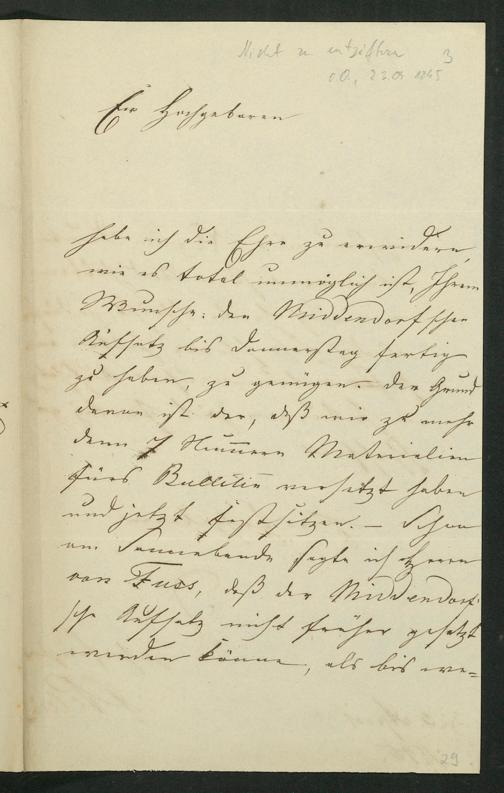 Nicht zu entziffern 3
o.O., 23.09 1845
Ew Hochgeboren
habe ich die Ehre zu erwidern,
wie es total unmöglich ist, Ihrem
Wunsche: den Middendorfschen
Aufsatz bis Donnerstag fertig
zu haben, zu genügen. Der Grund
davon ist der, daß wir zu mehr
denn 7 Nummern Materialien
fürs Bulletin versetzt haben
und jetzt festsitzen. — Schon
am Sonnabende sagte ich Herrn
von Fuss, daß der Middendorf-
sche Aufsatz nicht früher gesetzt
werden könne, als bis we-
29